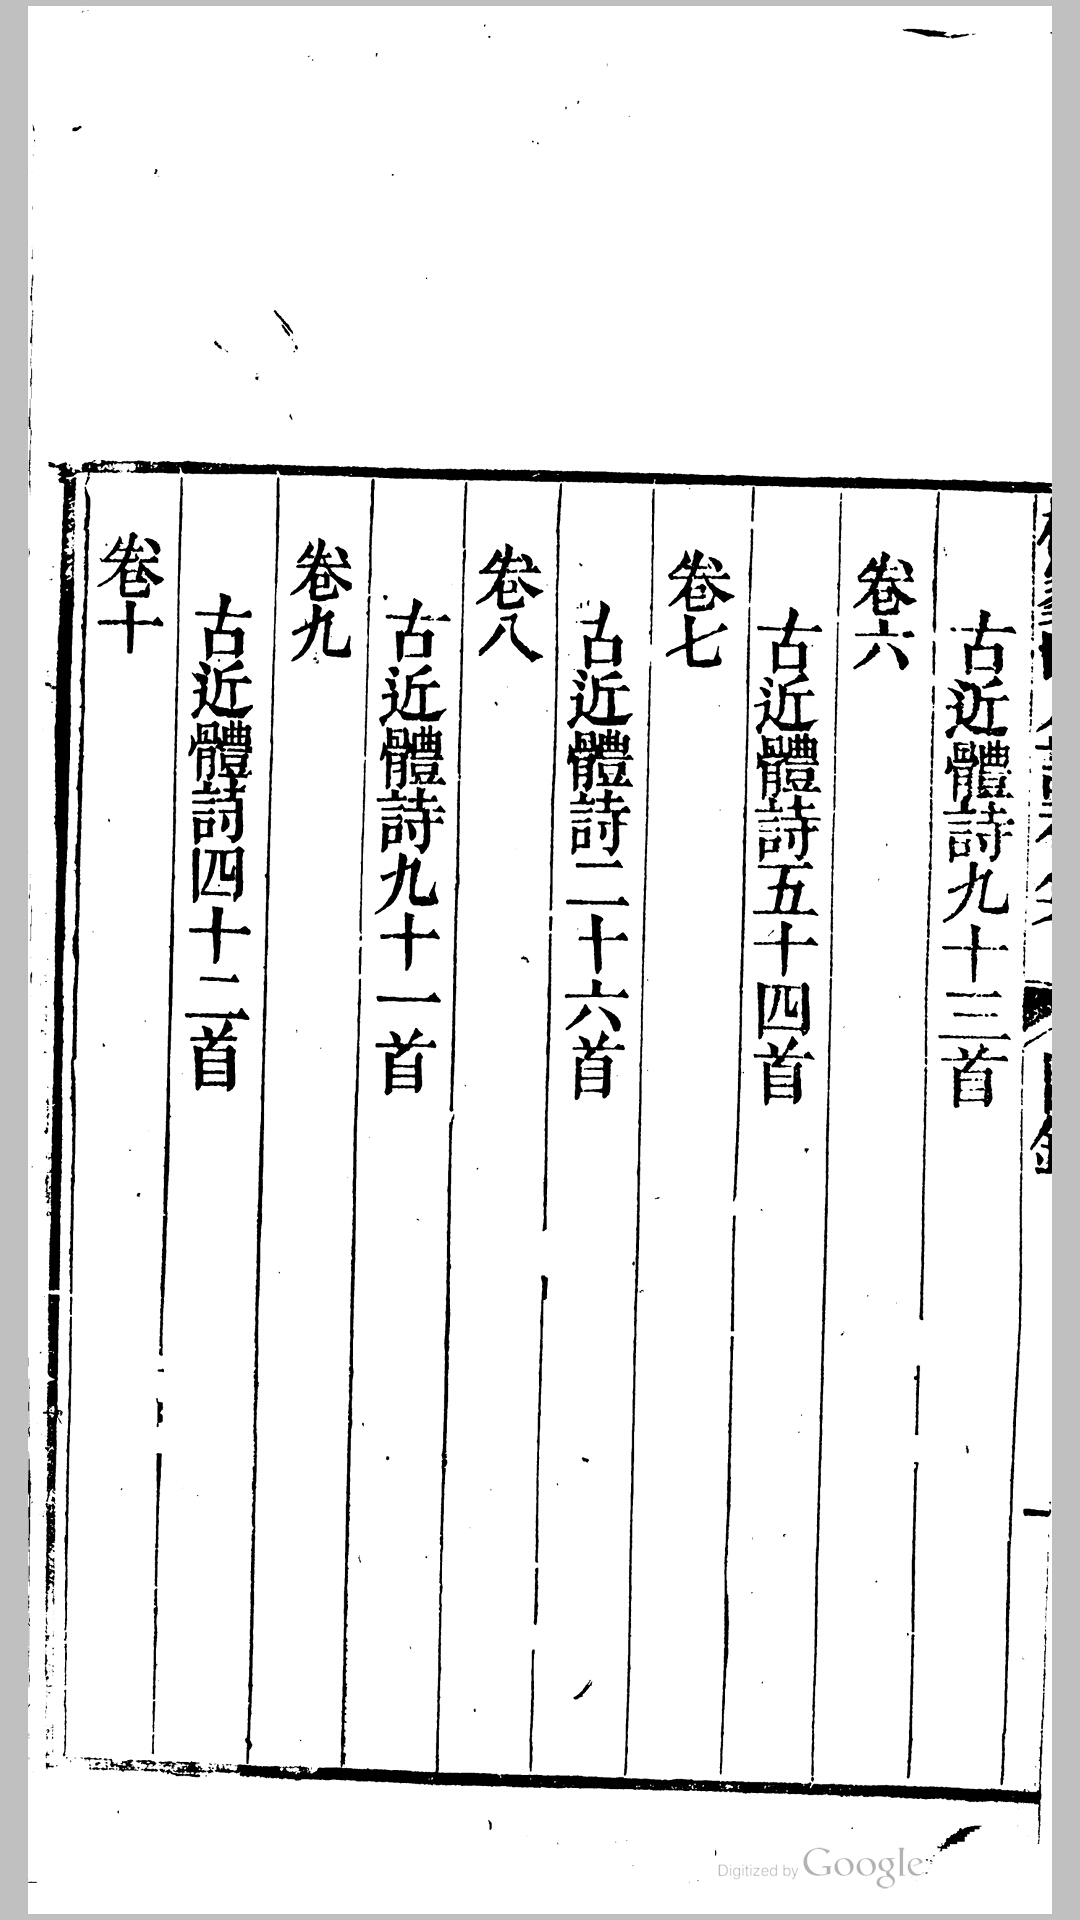 古近體詩九十三首
卷六
古近體詩五十四首
卷七
古近體詩二十六首
卷八
古近體詩九十一首
卷九
古近體詩四十二首
卷十
Digitized by Google